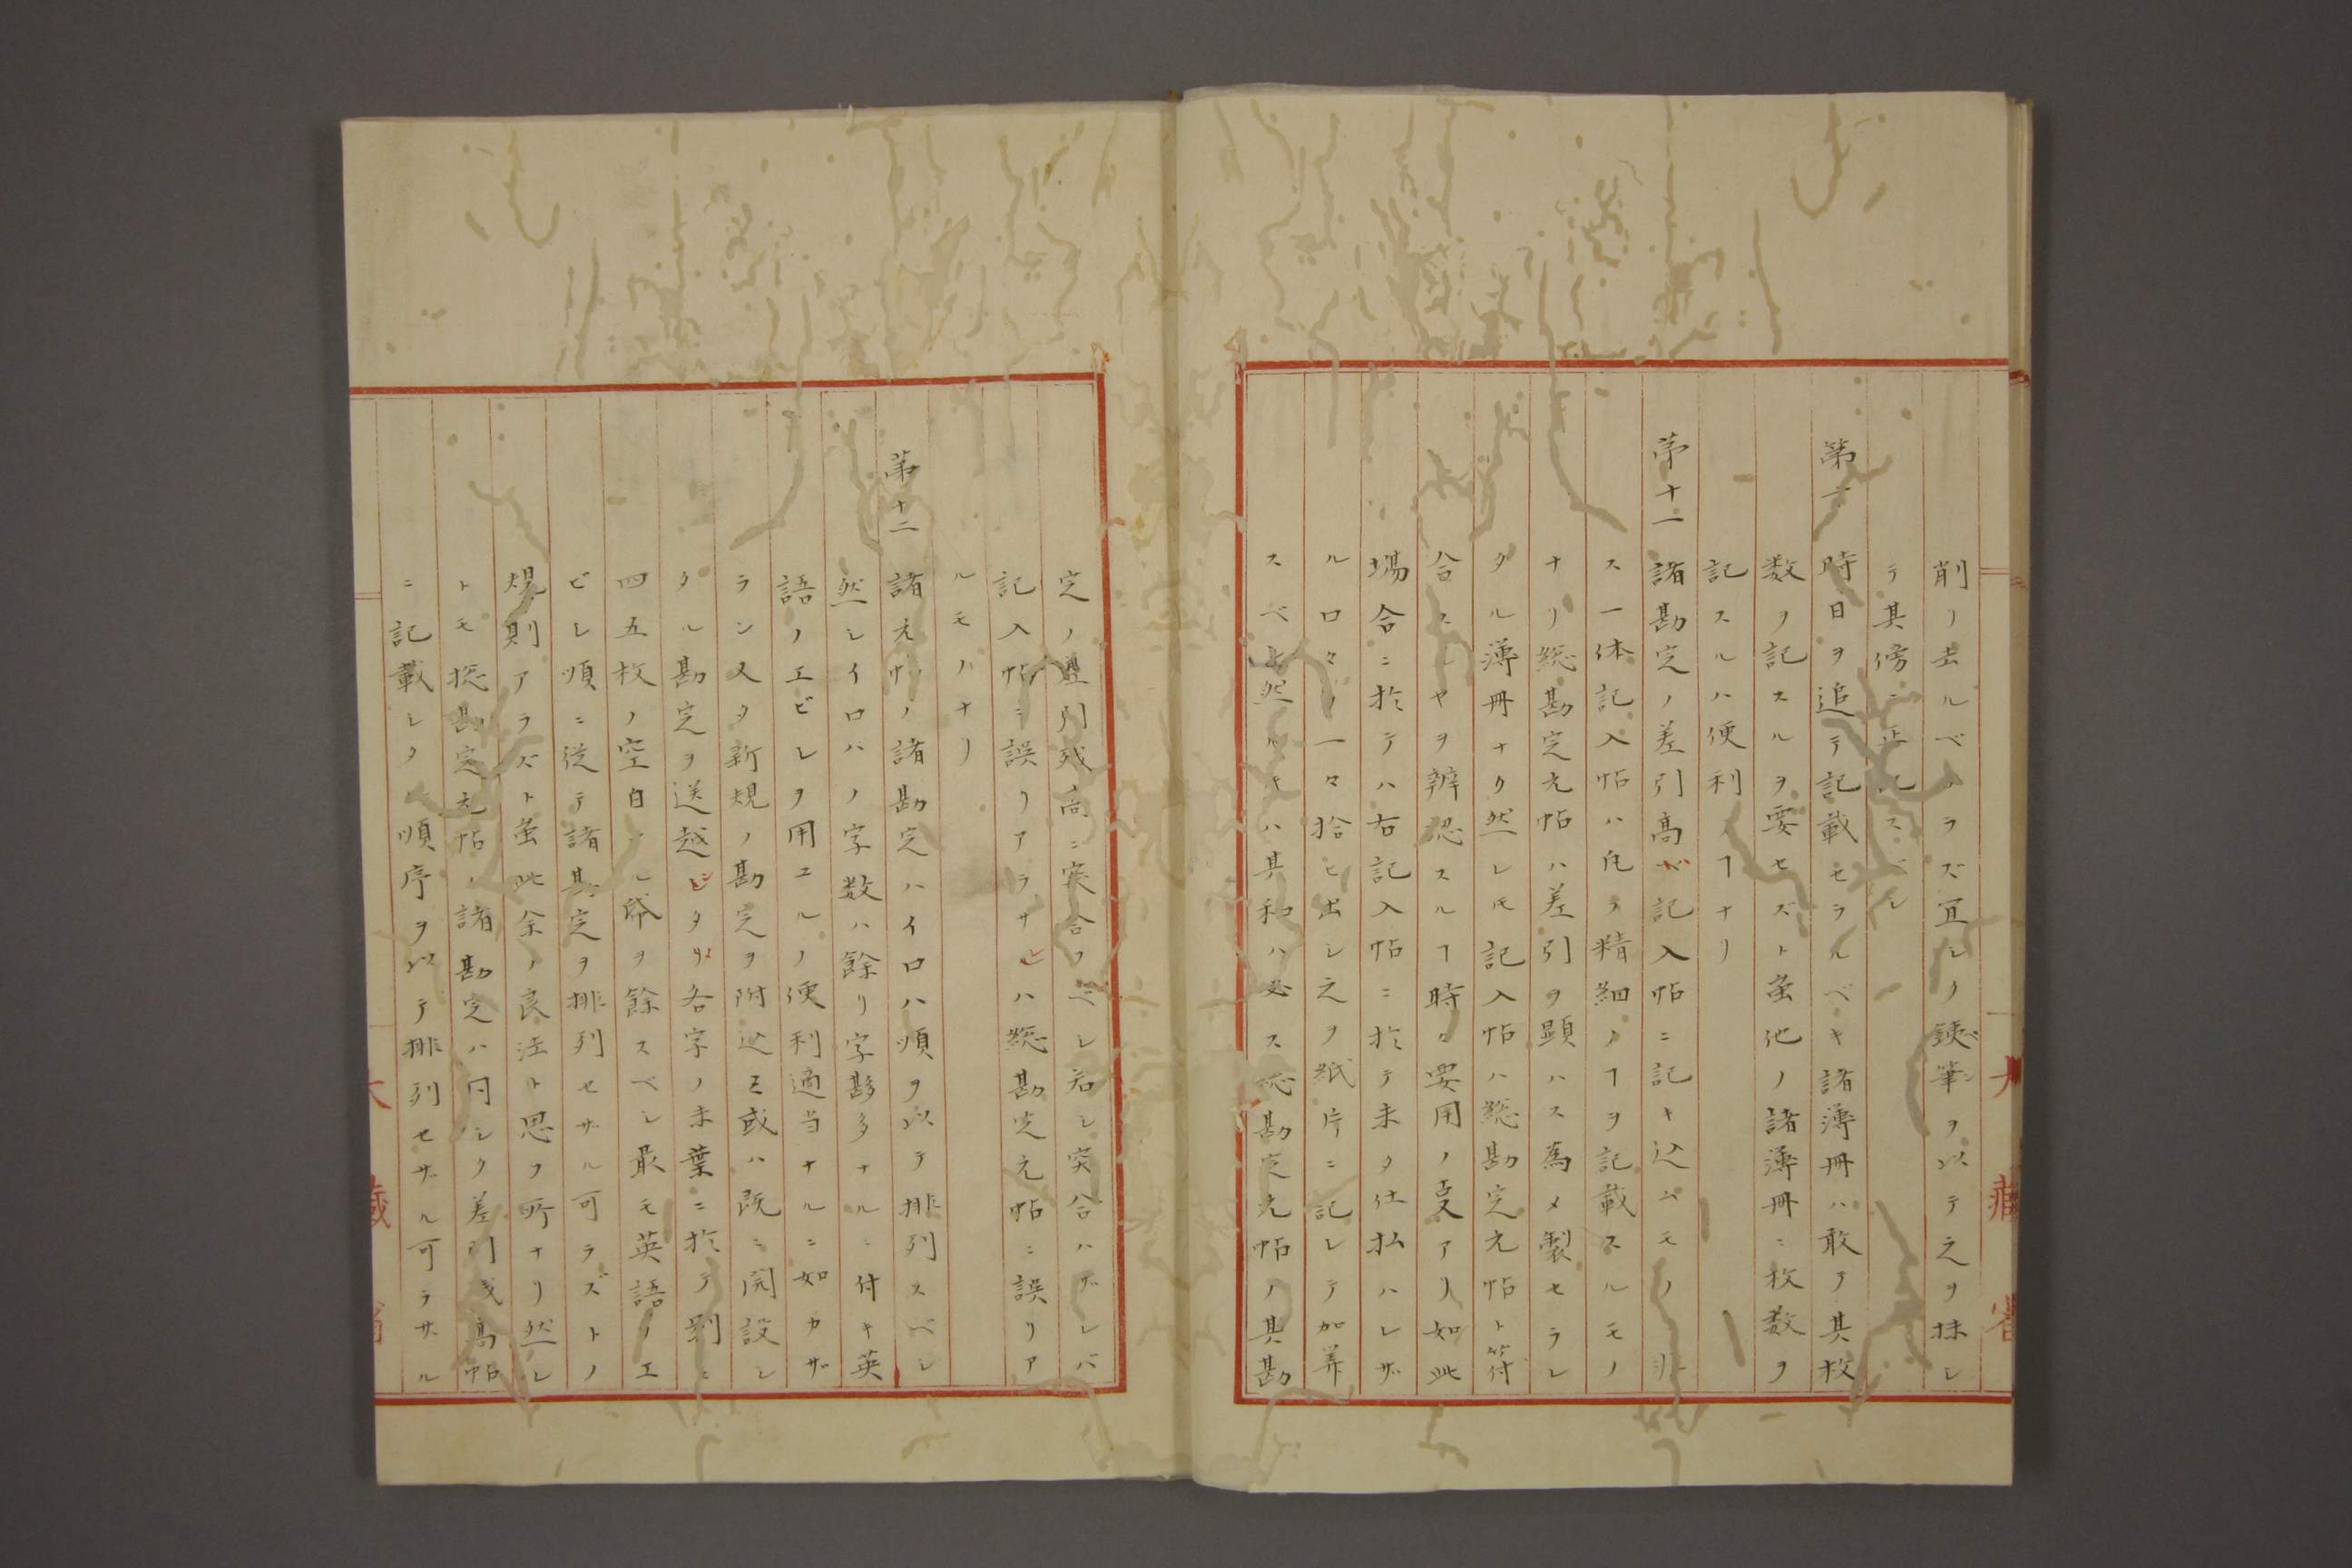 削リ去ルベカラズ宜シク鋏筆ヲ以テ之ヲ抹シ
テ其傍ニ正記スベシ
第十 時日ヲ追テ記載セラルベキ諸簿冊ハ敢テ其枚
数ヲ記スルヲ要セズト虽他ノ諸簿冊ニ枚数ヲ
記スルハ便利ノヿナリ
第十一 諸勘定ノ差引高ガ記入帖ニ記キ込ムモノニ非
ス一体記入帖ハ凡テ精細ノヿヲ記載スルモノ
ナリ総勘定元帖ハ差引ヲ顕ハス為メ製セラレ
タル簿冊ナリ然レ𪜈記入帖ハ総勘定元帖ト符
合スルヤヲ辨認スルヿ時々要用ノ㕝アリ如此
場合ニ於テハ右記入帖ニ於テ未タ仕払ハレザ
ル口々ノ一々拾ヒ出シ之ヲ紙片ニ記シテ加算
スベシ然ルキハ其和ハ必ス総勘定元帖ノ其勘
定ノ差引残高ニ突合フベシ若シ突合ハザレバ
記入帖ニ誤リアラサレハ総勘定元帖ニ誤リア
ルモハナリ
第十二 諸元帖ノ諸勘定ハイロハ順ヲ以テ排列スベシ
然シイロハノ字数ハ餘リ字夥多ナルニ付キ英
語ノエビシヲ用エルノ便利適当ナルニ如カザ
ラン又タ新規ノ勘定ヲ附込ミ或ハ既ニ開設シ
タル勘定ヲ送越シタリ各字ノ末葉ニ於テ別ニ
四五枚ノ空白ノル帋ヲ餘スベシ最モ英語ノエ
ビシ順ニ従テ諸勘定ヲ排列セザル可ラズトノ
規則アラズト虽此余ノ良法ト思フ所ナリ然レ
トモ総勘定元帖ノ諸勘定ハ同シク差引残高帖
ニ記載シタル順序ヲ以テ排列セザル可ラザル
大藏省